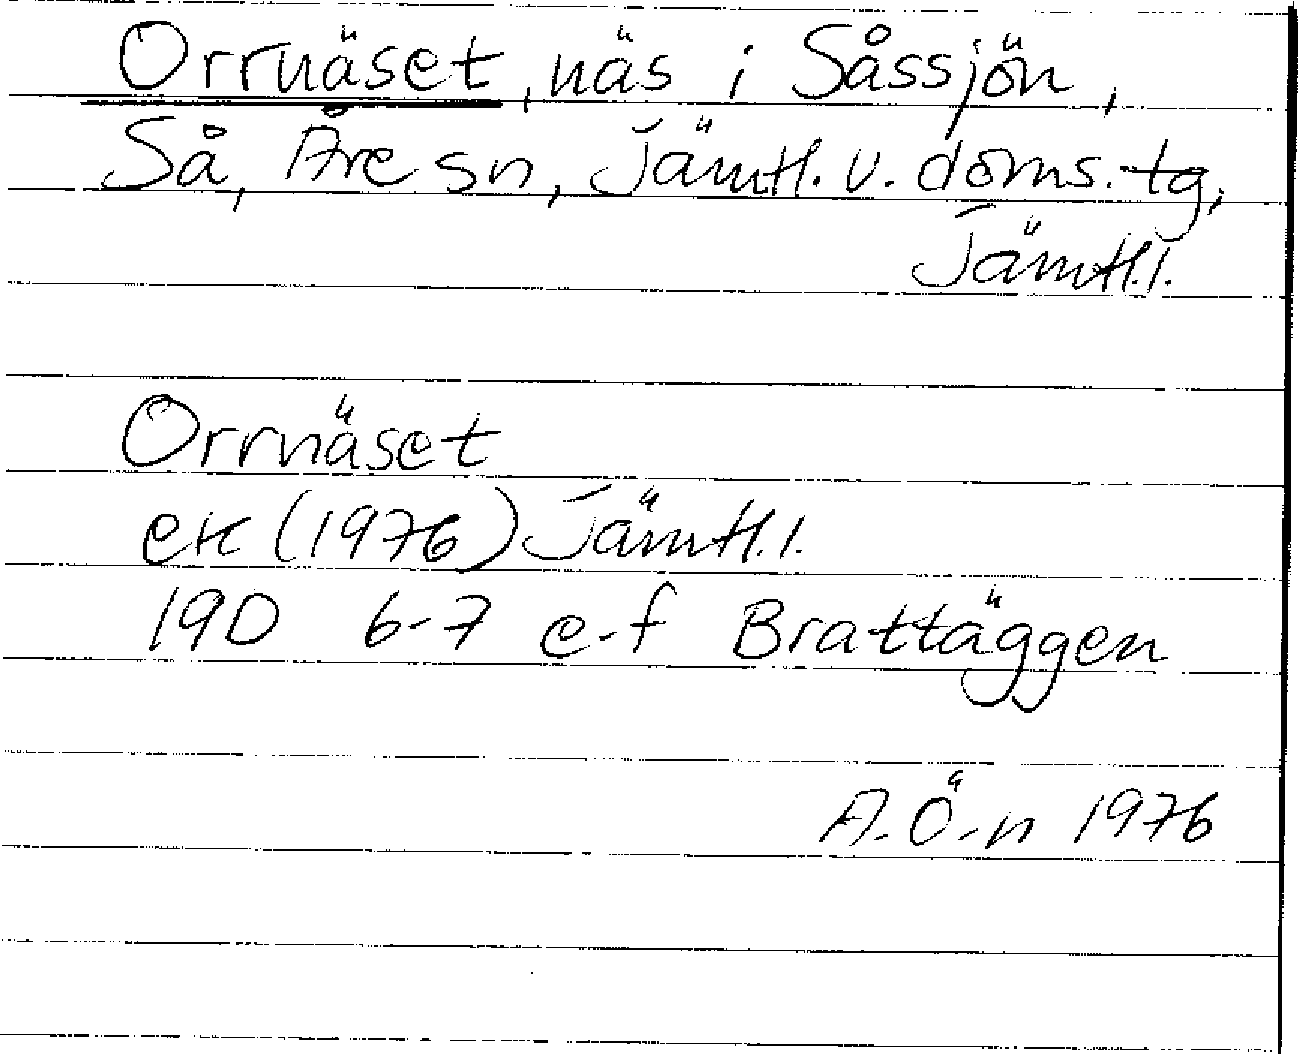 Orrnäset, näs i Såssjön,
Så, Åre sn, Jämtl. v. doms. tg,
Jämtl.l.
Orrnäset
ek (1976) Jämtl.l.
19D 6-7 e-f Brattäggen
A. Ö-n 1976